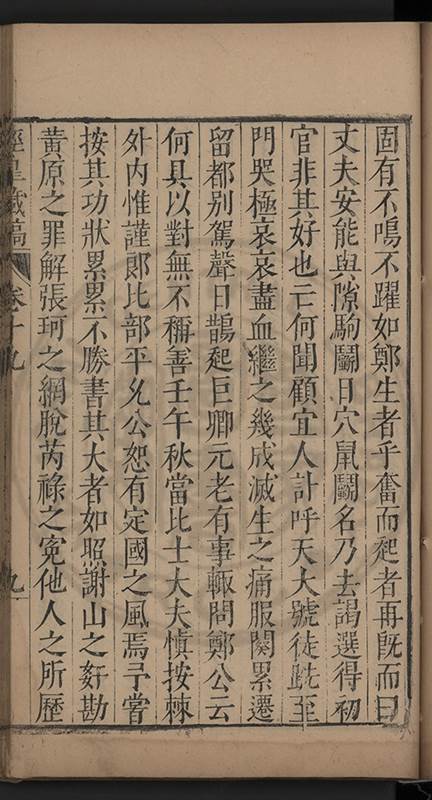 固有不鳴不躍如鄭生者乎奮而起者再既而曰
丈夫安能與隙駒鬭日穴鼠鬭名乃去謁選得初
官非其好也亡何聞顧宜人訃呼天大號徒跣至
門哭極哀哀盡血繼之幾成滅生之痛服闋累遷
留都別駕聲日鵲起巨卿元老有事輙問鄭公云
何具以對無不稱善壬午秋當比士大夫慎按棘
外內惟謹郎比部平允公恕有定國之風焉予嘗
按其功狀累累不勝書其大者如照謝山之姦勘
黃原之罪解張珂之網脫芮祿之冤他人之所歷
藏稿 卷十九 九